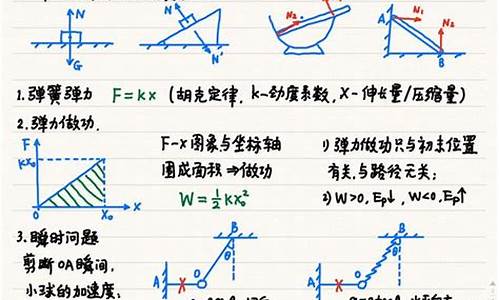 N
N
N₂
N₁
A
G
N'
B
1.弹簧弹力 F=kx (胡克定律,k-劲度系数,X-伸长量/压缩量)
2.弹力做功.
F
kx₀
0
X₀
x
F-x图象与坐标轴
围成面积⇒做功
W=½kx₀²
1)弹力做功只与初末位置
有关,与路径无关;
2)W>0,Ep↓,W<0,Ep↑
3.瞬时问题
剪断OA瞬间,
小球的加速度:
B
θ
A
O
B
θ
A
O